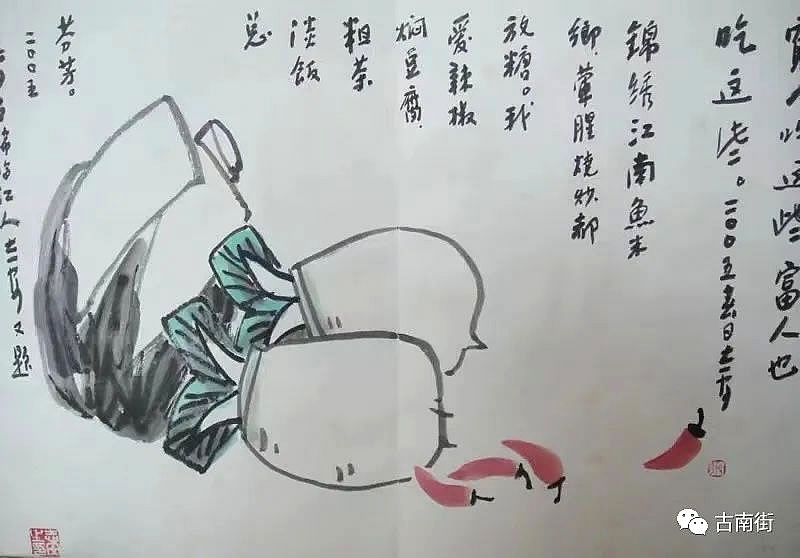 窮人吃这些富人也
吃这些。二〇〇五春日
錦绣江南魚米
鄉葷腥燒炒都
放糖。我
愛辣椒
焖豆腐.
粗茶
淡飯
总
芬芳。
二〇〇五
江人 又題
古南街